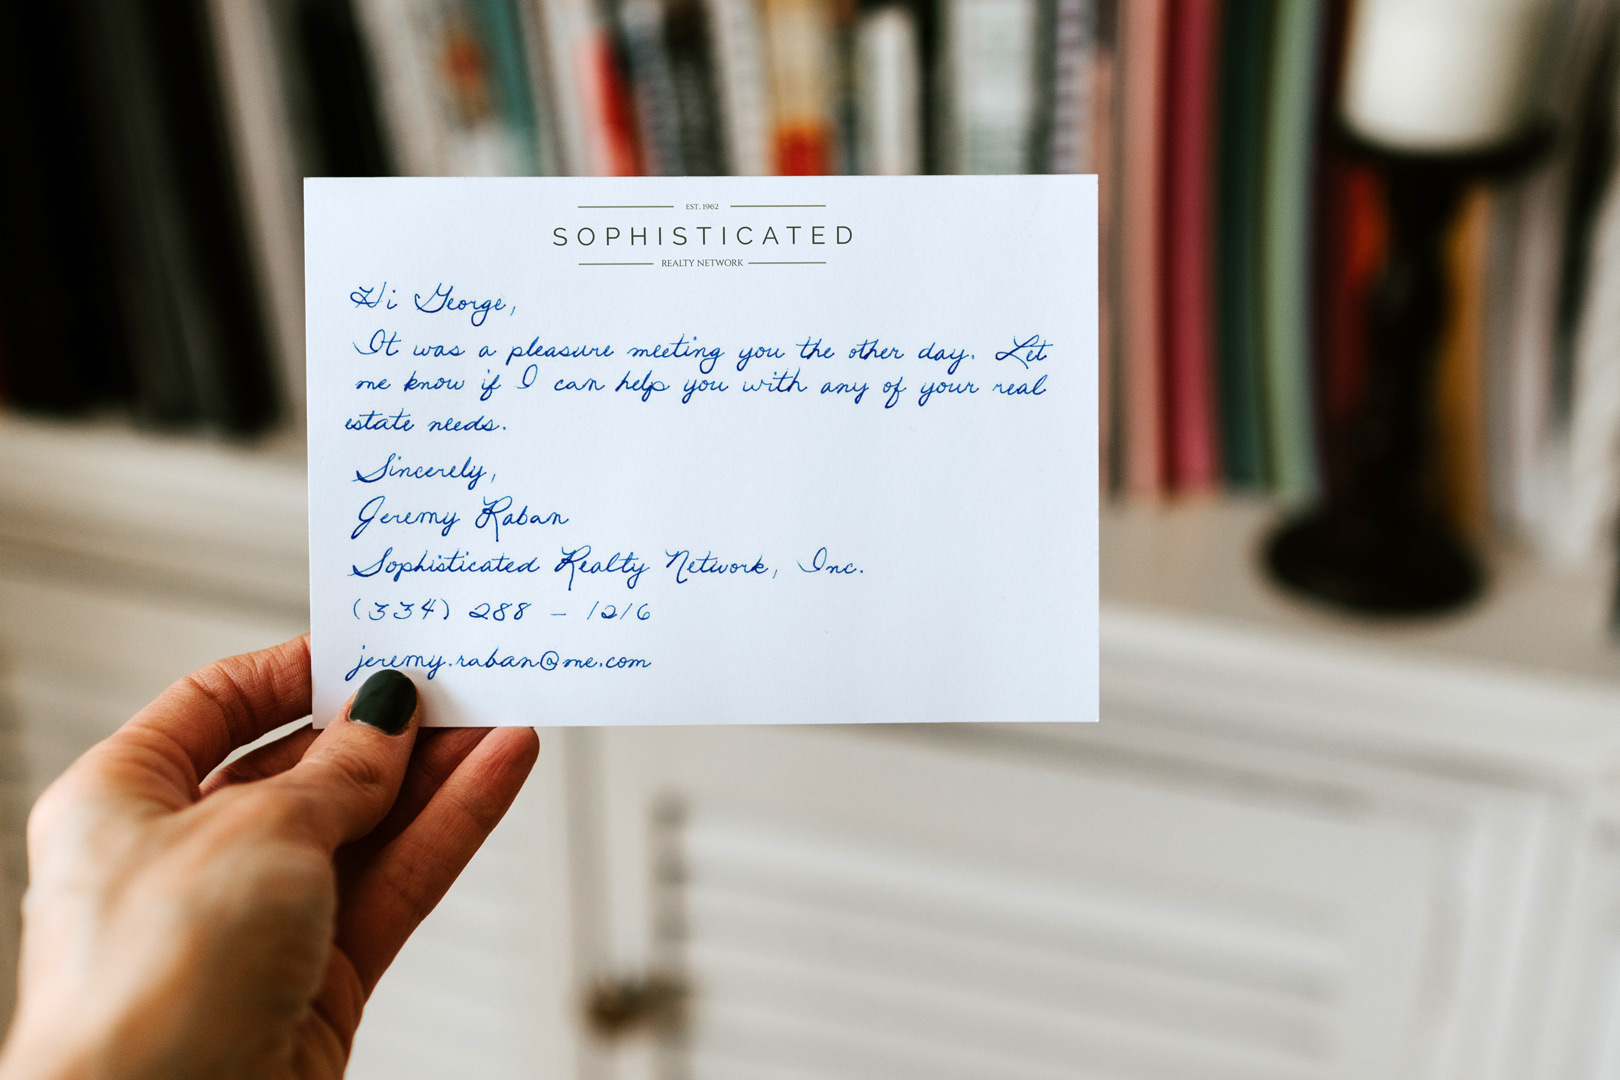 EST. 1962
SOPHISTICATED
REALTY NETWORK
Hi George,
It was a pleasure meeting you the other day. Let
me know if I can help you with any of your real
estate needs.
Sincerely,
Jeremy Raban
Sophisticated Realty Network, Inc.
(334) 288 - 1216
jeremy.raban@me.com